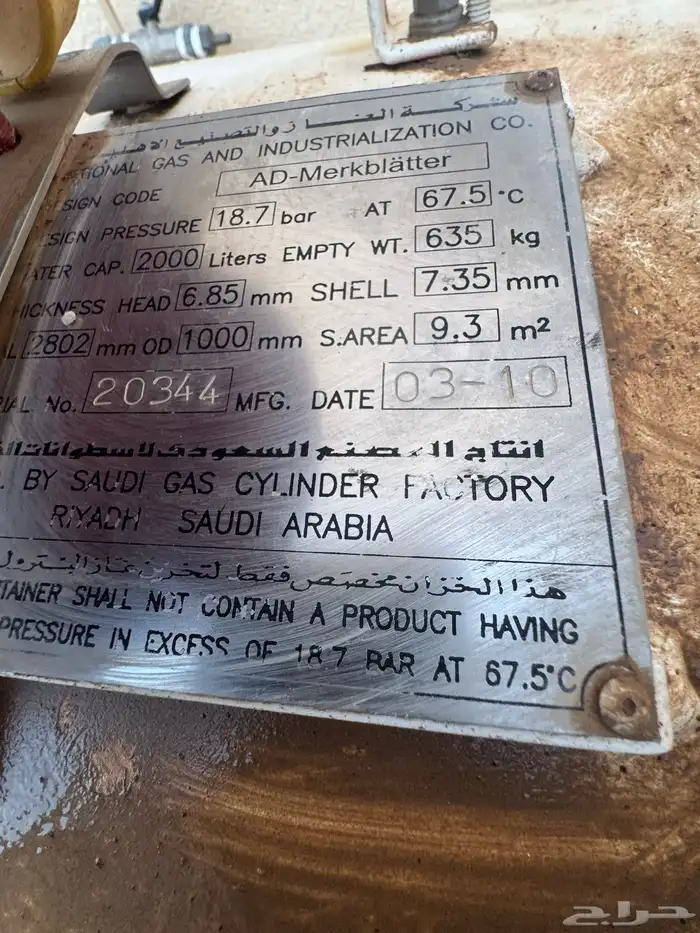 شركة الغاز والتصنيع الأهلية
TIONAL GAS AND INDUSTRIALIZATION CO.
SIGN CODE AD-Merkblätter
SIGN PRESSURE 18.7 bar AT 67.5 °C
ATER CAP. 2000 Liters EMPTY WT. 635 kg
HICKNESS HEAD 6.85 mm SHELL 7.35 mm
L 2802 mm OD 1000 mm S.AREA 9.3 m²
IAL No. 20344 MFG. DATE 03-10
انتاج المصنع السعودي لاسطوانات الغ
. BY SAUDI GAS CYLINDER FACTORY
RIYADH SAUDI ARABIA
هذا الخزان مخصص فقط لتخزين غاز البترول
TAINER SHALL NOT CONTAIN A PRODUCT HAVING
PRESSURE IN EXCESS OF 18.7 BAR AT 67.5°C
حراج